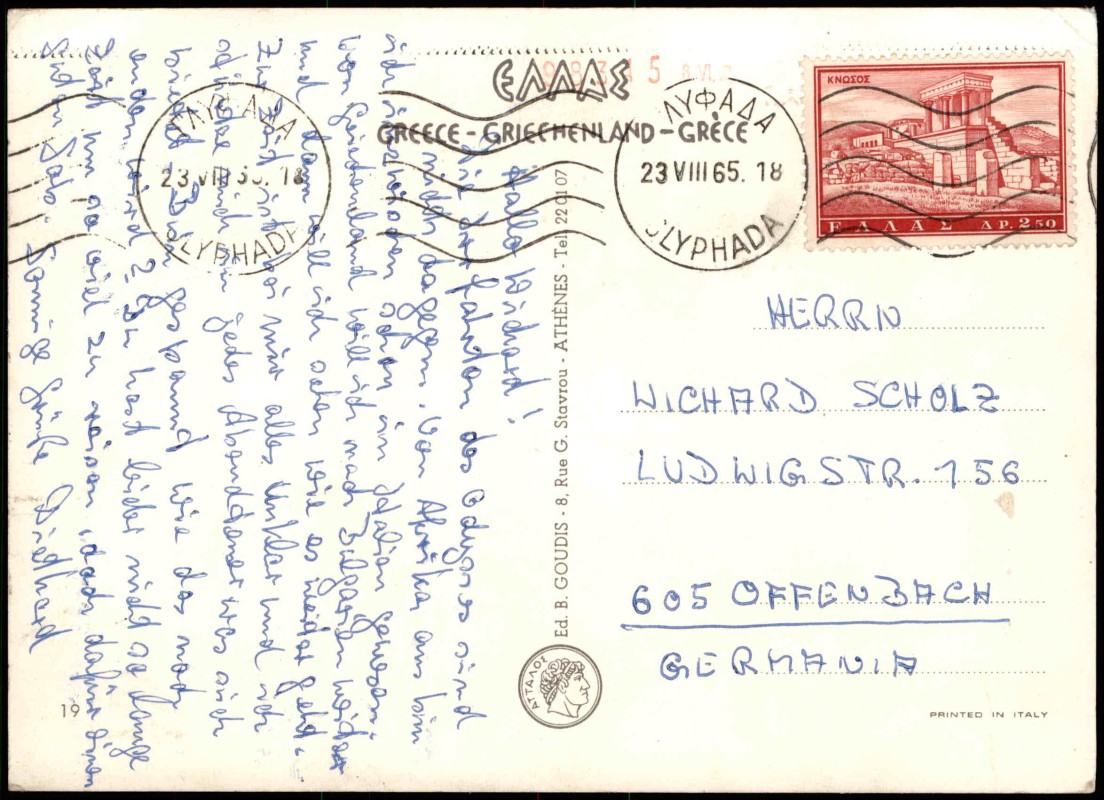 ΕΛΛΑΣ
GREECE - GRIECHENLAND - GRÈCE
ΓΛΥΦΑΔΑ
23 VIII 65. 18
GLYPHADA
ΓΛΥΦΑΔΑ
23 VIII 65. 18
GLYPHADA
ΚΝΩΣΟΣ
ΕΛΛΑΣ ΔΡ. 2.50
Hallo Wichard!
Die Irrfahrten des Odysses sind
nichts dagegen. Von Afrika aus bin
ich inzwischen schon in Italien gewesen.
Von Griechenland will ich nach Bulgarien weiter
und dann will ich sehen wie es weiter geht.
Zur Zeit ist bei mir alles unklar und ich
stürze mich in jedes Abendteuer was sich
bietet. Bin gespannt wie das noch
enden wird? Du hast leider nicht so lange
Zeit um so viel zu reisen, dafür einen
guten Job. Sonnige Grüße Diethard
Ed. B. GOUDIS - 8, Rue G. Stavrou - ATHÈNES - Tel. 22 01 07
ΑΤΤΑΛΟΣ
HERRN
WICHARD SCHOLZ
LUDWIGSTR. 156
605 OFFENBACH
GERMANIA
19
PRINTED IN ITALY